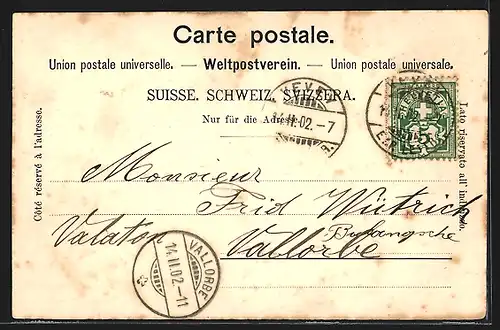 Carte postale.
Union postale universelle. — Weltpostverein. — Union postale universale.
SUISSE. SCHWEIZ. SVIZZERA.
Nur für die Adresse.
Côté réservé à l'adresse.
Lato riservato all' indirizzo.
VEVEY
14.II.02.–7
HELVETIA
5
Monsieur
Frid Wütrich
Valaton
Vallorbe
VALLORBE
14.II.02.–11